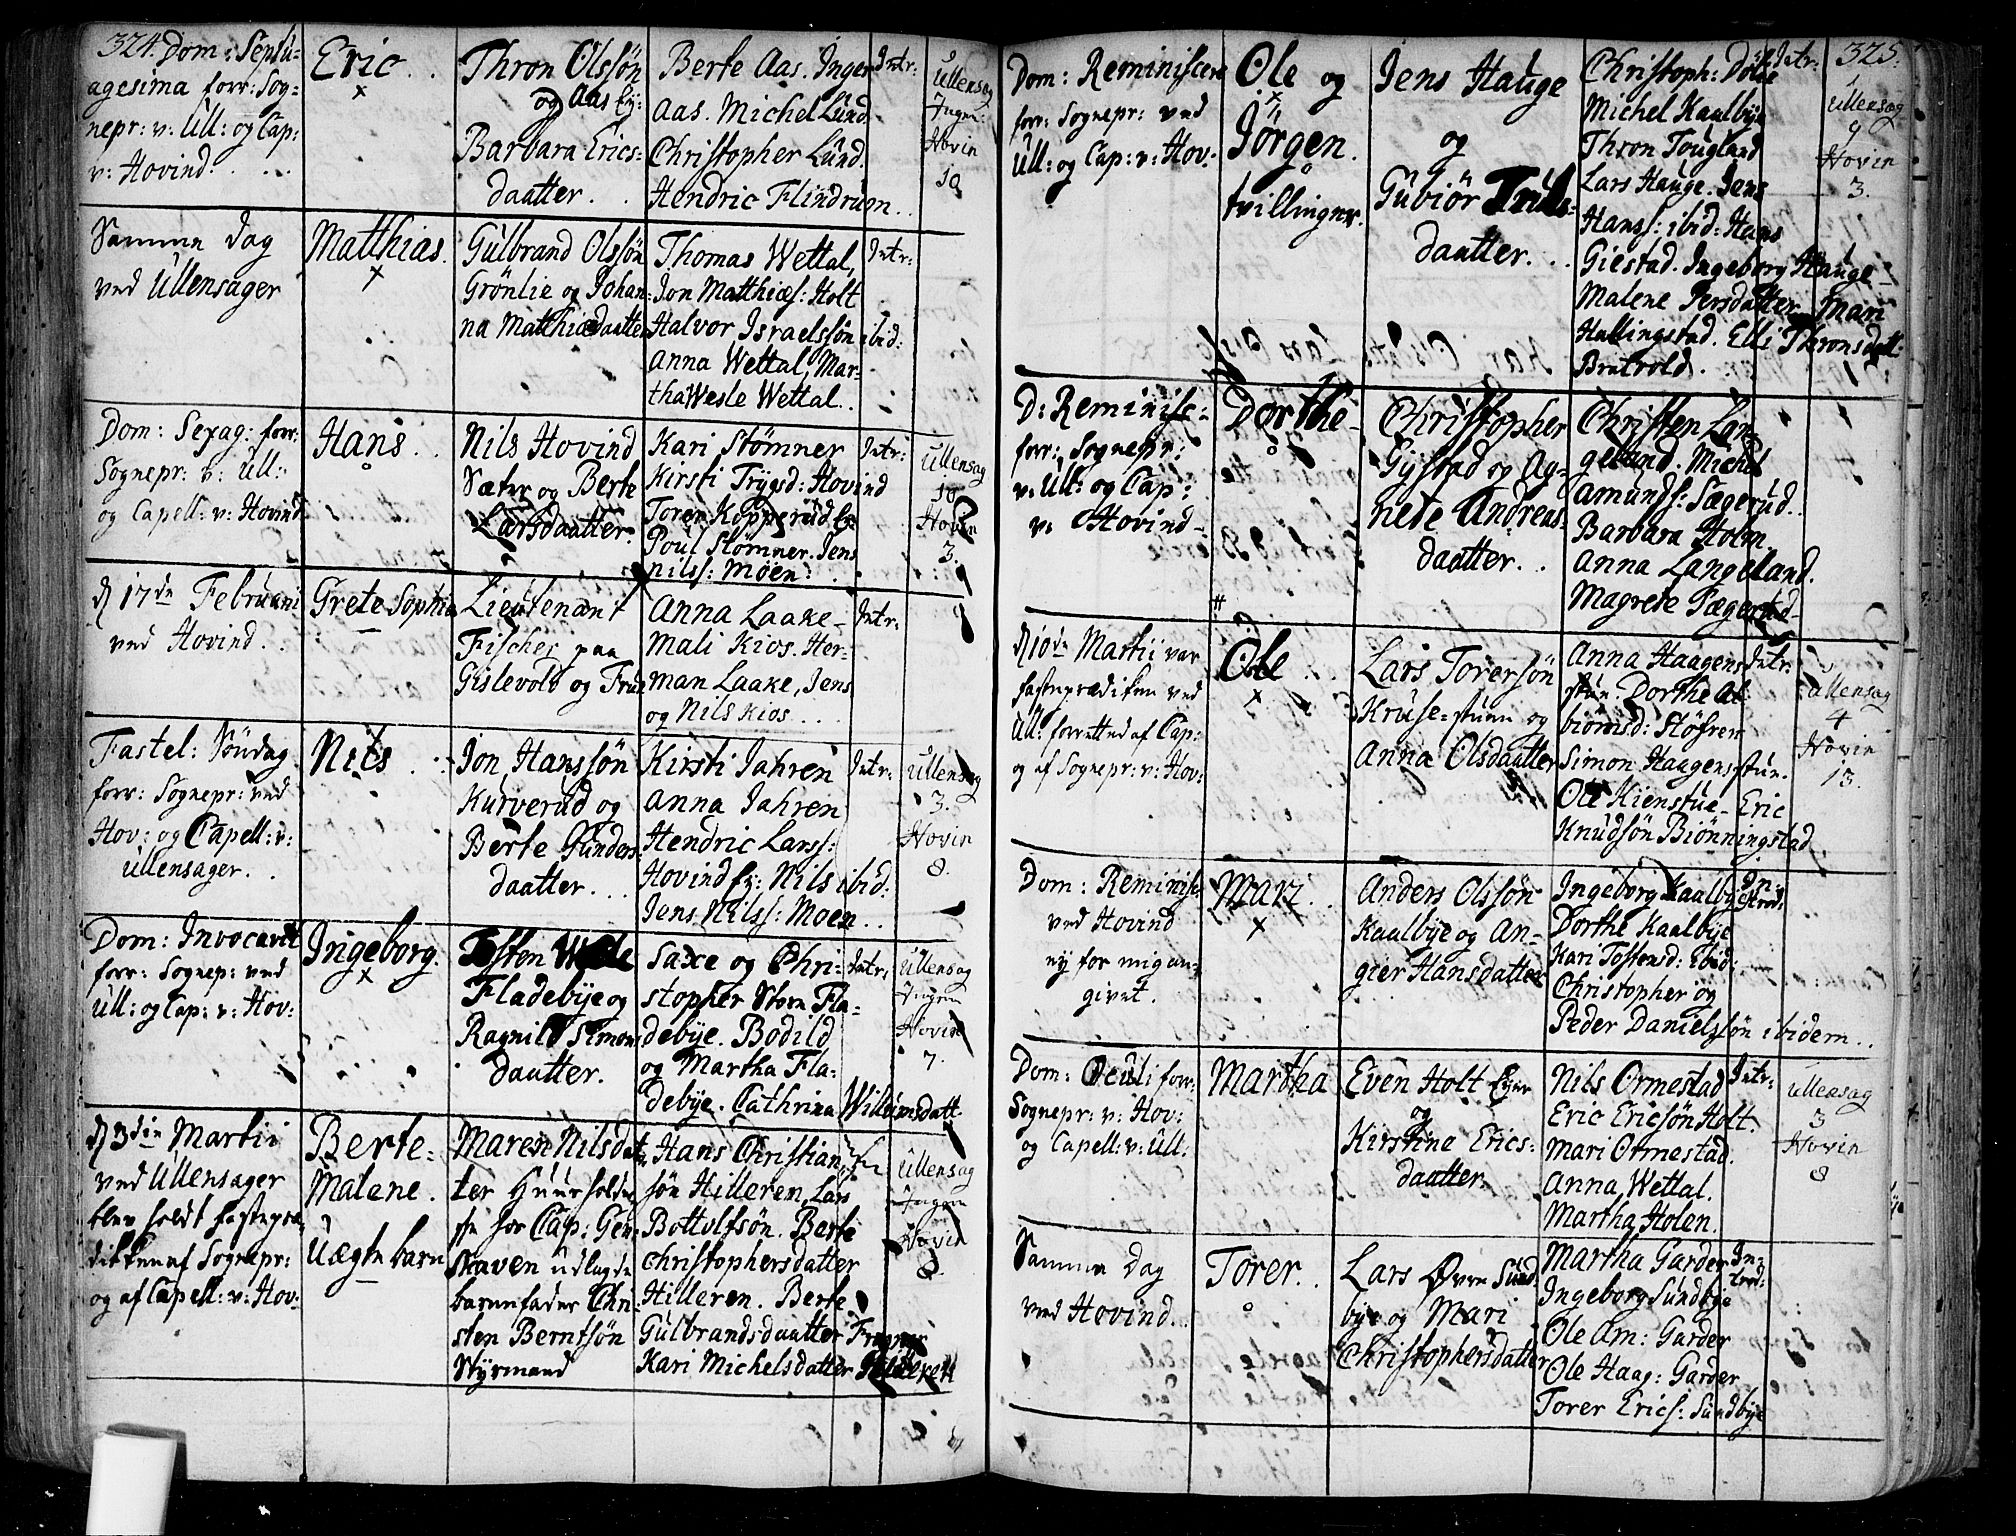 324. Dom: Septu-
agesima forr: Sog-
nepr: v: Ull: og Cap:
v: Hovind.
Eric
Thron Olssön
og Aas ey:
Barbara Erics-
daatter.
Berte Aas. Inger
Aas. Michel Lund
Christopher Lund.
Hendric Flindruen
Intr:
Ullensag
Ingen.
Hovin
10
Samme dag
ved Ullensager
Matthias.
Gulbrand Olssön
Grönlie og Johan-
na Matthiædaatter
Thomas Wettal,
Jon Matthiæs: Holt
Halvor Israelssön ibid:
Anna Wettal, Mar-
tha Wesle Wettal.
Intr:
Dom: Sexag: forr:
Sognepr: v: Ull:
og Capell: v: Hovind
Hans
Nils Hovind
Sæter og Berte
Larsdaatter.
Kari Stømner
Kirsti Trygsd: Hovind
Toren Kopperud
Poul Stømner. Jens
Nilss: Moen.
Intr:
Ullensag
10
Hovin
3.
d 17de Februarii
ved Hovind.
Grete Sophia
Lieutenant
Fischer paa
Gislevold og Frue
Anna Laake-
Mali Kios. Her-
man Laake, Jens
og Nils Kios
Intr:
Fastel: Söndag
forr: Sognepr: ved
Hov: og Capell: v:
Ullensager.
Nils
Jon Hanssön
Kurverud og
Berte Gunders-
daatter.
Kirsti Jahren
Anna Jahren
Hendric Larss:
Hovind ey: Nils ibid:
Jens Nilss: Moen
Intr:
Ullensag
3.
Hovin
8.
Dom: Invocavit
forr: Sognep: ved
Ull: og Cap: v: Hov:
Ingeborg.
Tosten
Fladebye og
Ragnild Simons
daatter.
Saxe og Chri-
stopher Store Fla-
debye. Bodild
og Martha Fla-
debye. Cathrina Willumsdatt
Intr:
Ullensag
Ingen
Hovin
7.
d 3die Martii
ved Ullensager
blev holdt fastepræ-
diken af Sognepr:
og af Capell: v: Hov:
Berte-
Malene.
Uægte barn
Maren Nilsdat-
ter Huusholder-
ske hos Cap:
udlagde
barnefader Chri-
sten Berntsön
Styrmand
Hans Christian
sön Hilleren, Lars
Bottolfsön. Berte
Christophersdatter
Hilleren. Berte
Gulbrandsdaatter
Kari Michelsdatter
Ullensag
Ingen
Hovin
8.
325.
Dom: Reminiscere
forr: Sognepr: ved
Ull: og Cap: v: Hov:
Ole og
Jörgen.
tvillinger.
Jens Hauge
og
Gubiör
daatter.
Christoph: Döle
Michel Kaalbye
Thron Tougland
Lars Hauge. Jens
Hanss: ibid: Hans
Giestad. Ingeborg Hauge
Malene Persdatter Mari
Hallingstad. Elli Thronsdatt:
Bratvold.
Intr:
Ullensag
9
Hovin
3.
D: Reminisc-
forr: Sognepr:
v: Ull: og Cap:
v: Hovind-
Dorthe-
Christopher
Gystad og Ag-
nete Andreas-
daatter.
Christen Lan-
geland. Michel
Amunds: Sægerud.
Barbara Holm
Anna Langeland.
Magrete Fægersted-
d 10de Martii var
fasteprædiken ved
Ull: forrettet af Cap:
og af Sognepr: v: Hov:
Ole
Lars Torersön
Kruse-stuen og
Anna Olsdaatter
Anna Haagens
stun: Dorthe Al-
biörnsd: Höfren
Simon Haagens stun.
Ole Kienstue- Eric
Knudsön Biönningstad
Intr:
Ullensag
4
Hovin
13.
Dom: Reminisc
ved Hovind
ey for mig an-
givet.
Mari
Anders Olssön
Kaalbye og An-
gier Hansdatter
Ingeborg Kaalbye
Dorthe Kaalbye
Kari Tostensd: Ibid:
Christopher og
Peder Danielssön ibidem
In-
trod:
Dom: Oculi forr:
Sognepr: v: Hov:
og Capell: v: Ull:
Martha
Even Holt Eyer
og
Kirstine Erics-
daatter.
Nils Ormestad
Eric Ericsön Holt.
Mari Ormestad.
Anna Wettal.
Martha Holen.
Intr:
Ullensag
3
Hovin
8
Samme Dag
ved Hovind
Torer.
Lars Øvre Sund
bye og Mari
Christophersdatter
Martha Garder
Ingeborg Sundbye
Ole Am: Garder
Ole Haag: Garder
Torer Erics: Sundbye
In-
trod: